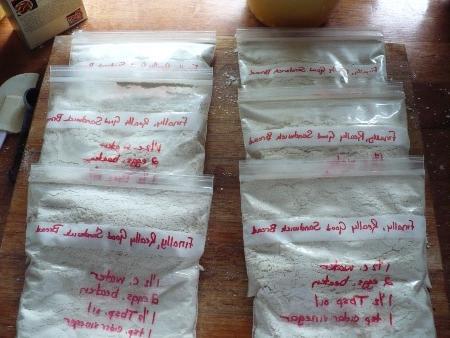 Finally, Really Good Sandwich Bread
Finally, Really Good Sandwich Bread
1½ c. water
2 eggs, beaten
Finally, Really Good Sandwich Bread
Finally, Really Good Sandwich Bread
1½ c. water
2 eggs, beaten
1½ Tbsp oil
1 tsp cider vinegar
Finally, Really Good Sandwich Bread
1½ c. water
2 eggs, beaten
1½ Tbsp oil
1 tsp cider vinegar